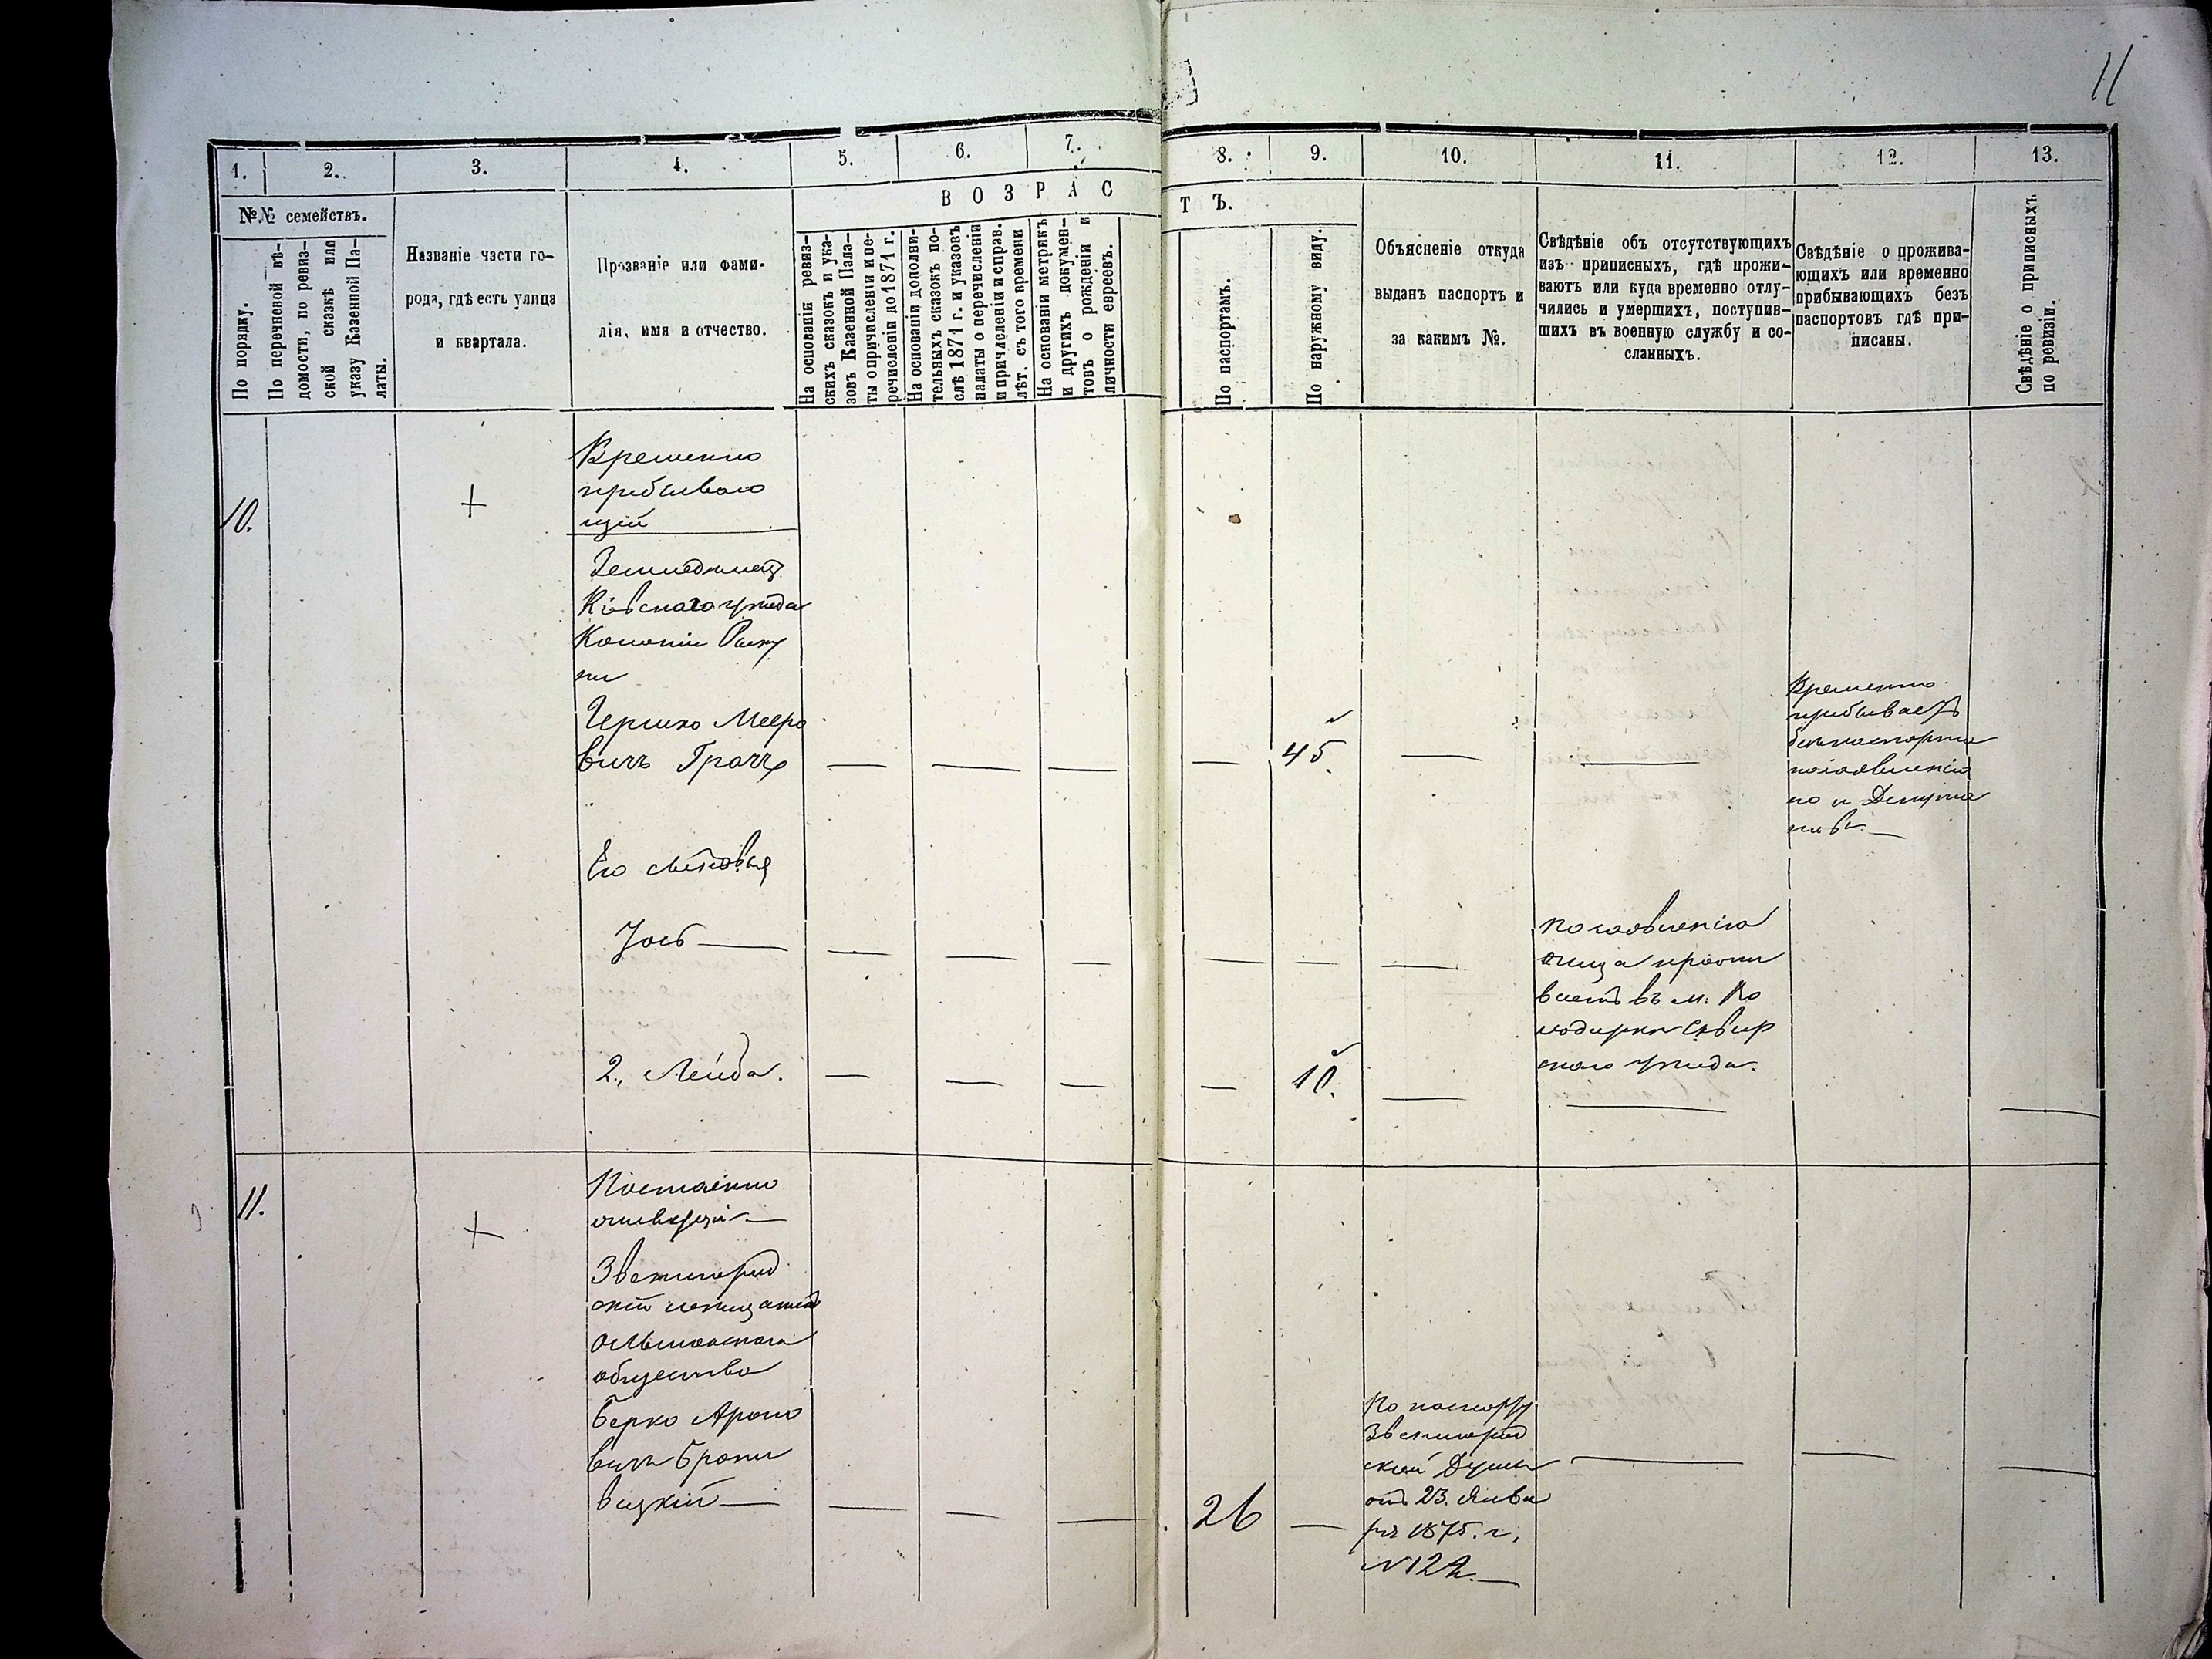 11
1.
2.
3.
4.
5.
6.
7.
8.
9.
10.
11.
12.
13.
№№ семействъ.
В О З Р А С Т Ъ.
По порядку.
По перечневой вѣ-
домости, по ревиз-
ской сказкѣ или
указу Казенной Па-
латы.
Названіе части го-
рода, гдѣ есть улица
и квартала.
Прозваніе или фами-
лія, имя и отчество.
На основаніи ревиз-
скихъ сказокъ и ука-
зовъ Казенной Пала-
ты о причисленіи и пе-
речисленіи до 1871 г.
На основаніи дополни-
тельныхъ сказокъ по-
слѣ 1871 г. и указовъ
палаты о перечисленіи
и причлсленіи и справ.
лѣт. съ того времени
На основаніи метрикъ
и другихъ докумен-
товъ о рожденіи и
личности евреевъ.
По паспортамъ.
По наружному виду.
Объясненіе откуда
выданъ паспортъ и
за какимъ №.
Свѣдѣніе объ отсутствующихъ
изъ приписныхъ, гдѣ прожи-
ваютъ или куда временно отлу-
чились и умершихъ, поступив-
шихъ въ военную службу и со-
сланныхъ.
Свѣдѣніе о прожива-
ющихъ или временно
прибывающихъ безъ
паспортовъ гдѣ при-
писаны.
Свѣдѣніе о приписныхъ
по ревизіи.
10.
+
Временно
прибываю
щій
Земледѣлецъ
Кіевскаго уѣзда
Колоніи
Гершко Мееро
вичъ Грачъ
45.
Временно
прибываетъ
безъ паспорта
по заявленію
его и Депута
товъ.
Его сыновья
Іось
по заявленію
отца прожи
ваетъ въ м. Во
лодаркѣ Сквир
скаго уѣзда.
2., Лейба.
10.
11.
+
Постоянно
живущій
Звенигород
скій мѣщанинъ
Ольшанскаго
общества
Берко Ароно
вичъ Брани
вицкій
26
По паспорту
Звенигород
ской Думы
отъ 23. Янва
ря 1875. г.